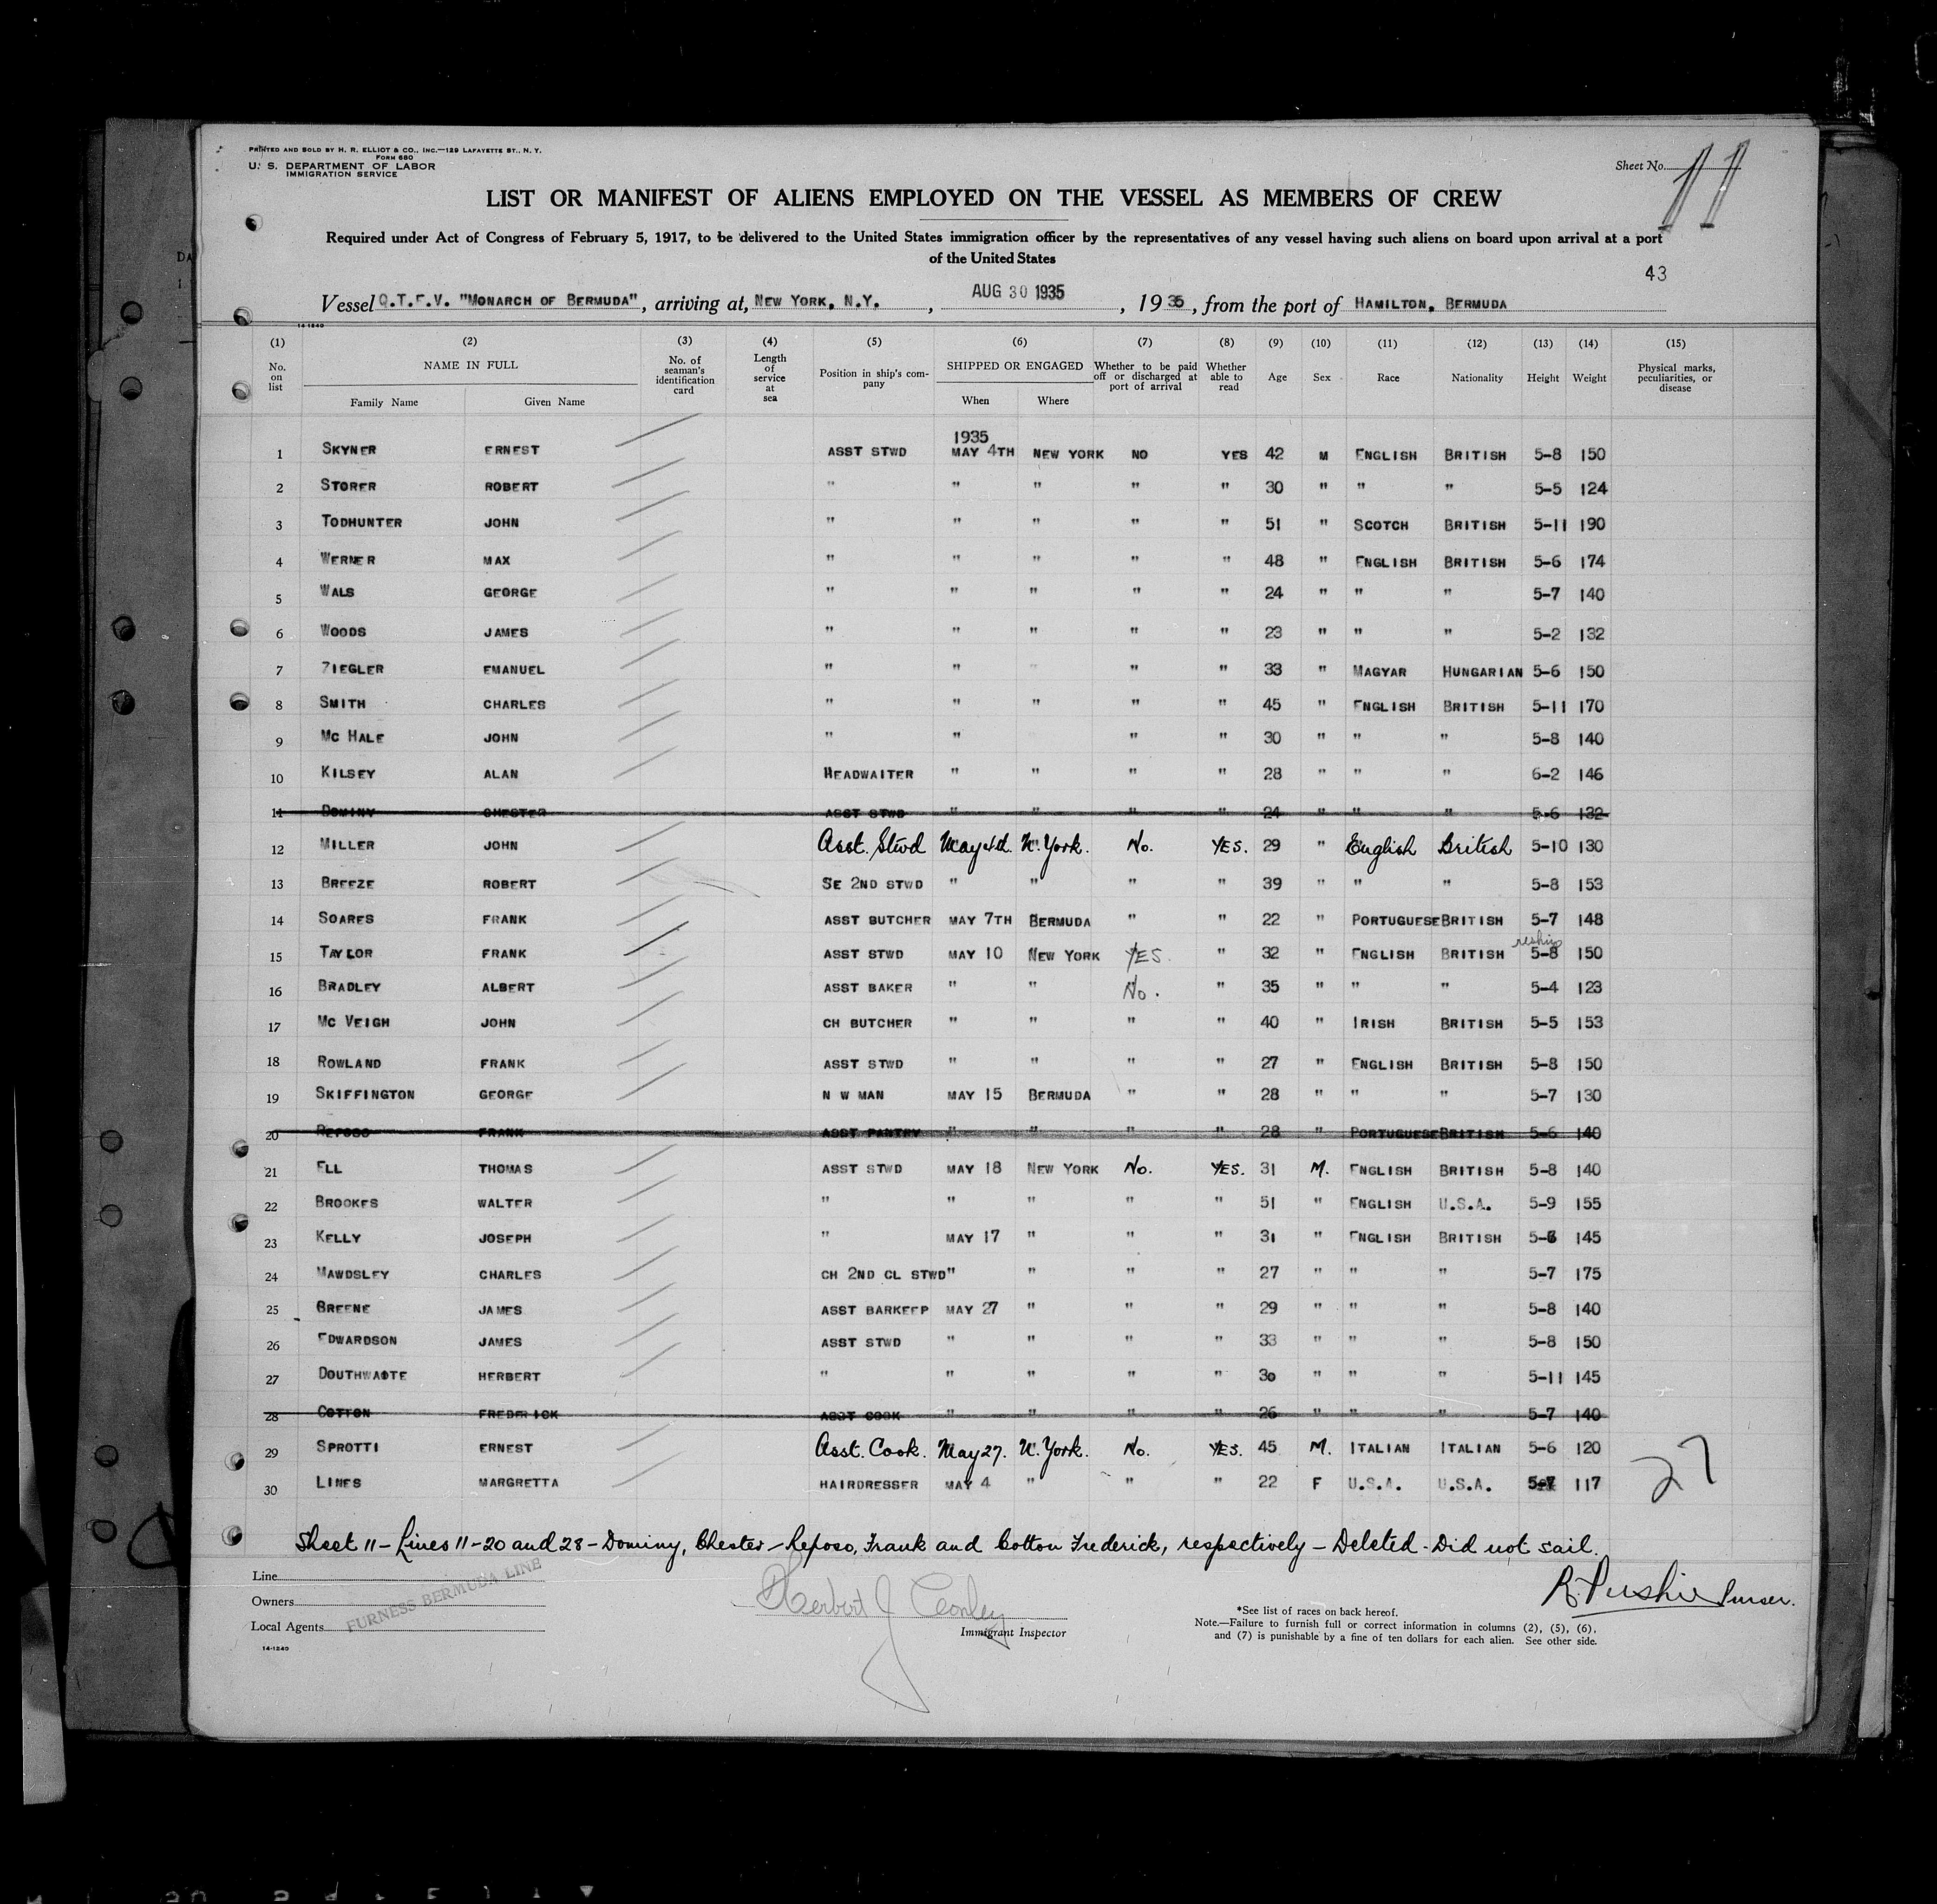 PRINTED AND SOLD BY H. R. ELLIOT & CO., INC.—129 LAFAYETTE ST., N. Y.
FORM 680
U. S. DEPARTMENT OF LABOR
IMMIGRATION SERVICE
Sheet No. 11
LIST OR MANIFEST OF ALIENS EMPLOYED ON THE VESSEL AS MEMBERS OF CREW
Required under Act of Congress of February 5, 1917, to be delivered to the United States immigration officer by the representatives of any vessel having such aliens on board upon arrival at a port
of the United States
43
Vessel Q.T.E.V. "MONARCH OF BERMUDA", arriving at, NEW YORK, N.Y., AUG 30 1935, 1935, from the port of HAMILTON, BERMUDA
14-1240
(1) (2) (3) (4) (5) (6) (7) (8) (9) (10) (11) (12) (13) (14) (15)
No. on list NAME IN FULL Family Name Given Name No. of seaman's identification card Length of service at sea Position in ship's company SHIPPED OR ENGAGED When Where Whether to be paid off or discharged at port of arrival Whether able to read Age Sex Race Nationality Height Weight Physical marks, peculiarities, or disease
1935
1 SKYNER ERNEST ASST STWD MAY 4TH NEW YORK NO YES 42 M ENGLISH BRITISH 5-8 150
2 STORER ROBERT " " " " " 30 " " " 5-5 124
3 TODHUNTER JOHN " " " " " 51 " SCOTCH BRITISH 5-11 190
4 WERNER MAX " " " " " 48 " ENGLISH BRITISH 5-6 174
5 WALS GEORGE " " " " " 24 " " " 5-7 140
6 WOODS JAMES " " " " " 23 " " " 5-2 132
7 ZIEGLER EMANUEL " " " " " 33 " MAGYAR HUNGARIAN 5-6 150
8 SMITH CHARLES " " " " " 45 " ENGLISH BRITISH 5-11 170
9 MC HALE JOHN " " " " 30 " " " 5-8 140
10 KILSEY ALAN HEADWAITER " " " " 28 " " " 6-2 146
11 DOMINY CHESTER ASST STWD " " " " 24 " " " 5-6 132
12 MILLER JOHN Asst. Stwd May 4th. N. York. No. YES. 29 " English British 5-10 130
13 BREEZE ROBERT SE 2ND STWD " " " " 39 " " " 5-8 153
14 SOARES FRANK ASST BUTCHER MAY 7TH BERMUDA " " 22 " PORTUGUESE BRITISH 5-7 148
reship
15 TAYLOR FRANK ASST STWD MAY 10 NEW YORK YES. " 32 " ENGLISH BRITISH 5-8 150
16 BRADLEY ALBERT ASST BAKER " " No. " 35 " " " 5-4 123
17 MC VEIGH JOHN CH BUTCHER " " " " 40 " IRISH BRITISH 5-5 153
18 ROWLAND FRANK ASST STWD " " " " 27 " ENGLISH BRITISH 5-8 150
19 SKIFFINGTON GEORGE N W MAN MAY 15 BERMUDA " " 28 " " " 5-7 130
20 REPOSO FRANK ASST PANTRY " " " " 28 " PORTUGUESE BRITISH 5-6 140
21 ELL THOMAS ASST STWD MAY 18 NEW YORK No. YES. 31 M. ENGLISH BRITISH 5-8 140
22 BROOKES WALTER " " " " " 51 " ENGLISH U.S.A. 5-9 155
23 KELLY JOSEPH " MAY 17 " " " 31 " ENGLISH BRITISH 5-6 145
24 MAWDSLEY CHARLES CH 2ND CL STWD " " " " 27 " " " 5-7 175
25 BREENE JAMES ASST BARKEEP MAY 27 " " " 29 " " " 5-8 140
26 EDWARDSON JAMES ASST STWD " " " " 33 " " " 5-8 150
27 DOUTHWAITE HERBERT " " " " " 30 " " " 5-11 145
28 COTTON FREDERICK ASST COOK " " " " 26 " " " 5-7 140
29 SPROTTI ERNEST Asst. Cook. May 27. N. York. No. YES. 45 M. ITALIAN ITALIAN 5-6 120
30 LINES MARGRETTA HAIRDRESSER MAY 4 " " " 22 F U.S.A. U.S.A. 5-7 117
27
Sheet 11 - Lines 11-20 and 28 - Dominy, Chester - Reposo, Frank and Cotton Frederick, respectively - Deleted - Did not sail.
Line
Owners
Local Agents
FURNESS BERMUDA LINE
14-1240
Herbert J
Immigrant Inspector
Purser.
*See list of races on back hereof.
Note.—Failure to furnish full or correct information in columns (2), (5), (6),
and (7) is punishable by a fine of ten dollars for each alien. See other side.